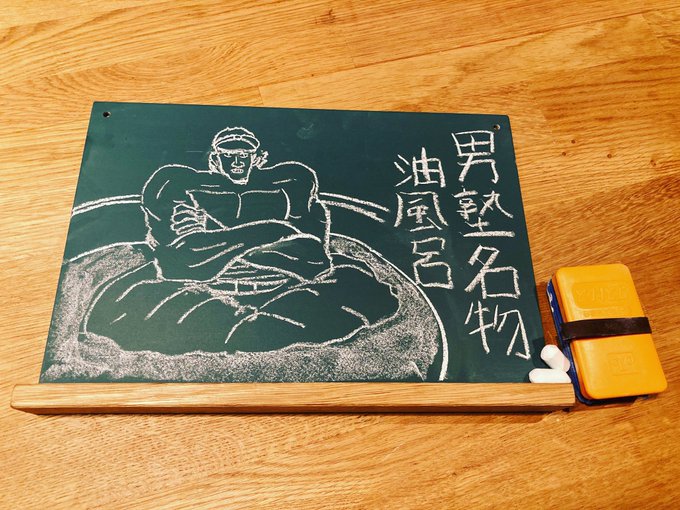 男塾名物
油風呂